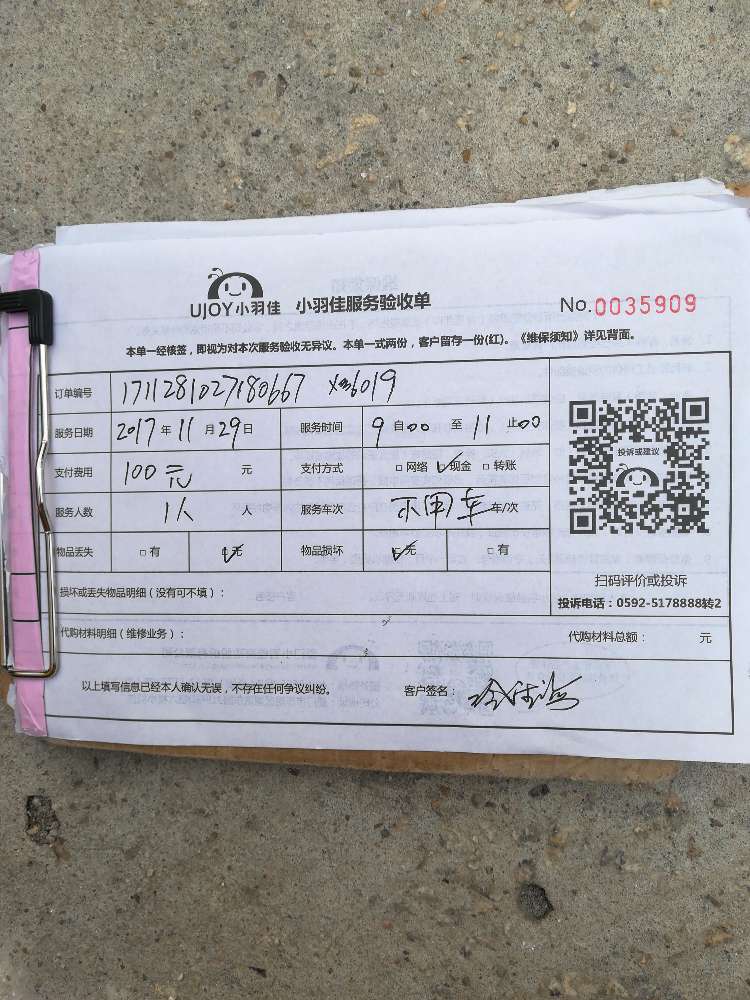 UJOY小羽佳 小羽佳服务验收单 No.0035909
本单一经核签，即视为对本次服务验收无异议。本单一式两份，客户留存一份(红)。《维保须知》详见背面。
订单编号 1711281027180667 6019
服务日期 2017年11月29日 服务时间 9自00至11止00
支付费用 100元 元 支付方式 □网络 ☑现金 □转账
服务人数 1人 人 服务车次 不用车 年/次
物品丢失 □有 ☑无 物品损坏 ☑无 □有
投诉或建议
扫码评价或投诉
投诉电话：0592-5178888转2
损坏或丢失物品明细（没有可不填）：
代购材料明细（维修业务）： 代购材料总额： 元
以上填写信息已经本人确认无误，不存在任何争议纠纷。 客户签名：